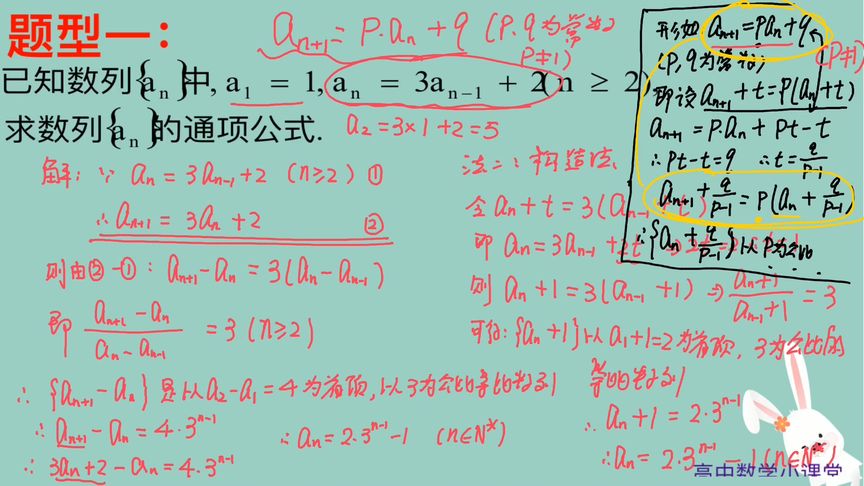 题型一：
a_{n+1} = P·a_n + q (P.q为常数 P≠1)
已知数列{a_n}中, a_1 = 1, a_n = 3a_{n-1} + 2(n ≥ 2),
求数列{a_n}的通项公式.
a_2=3×1+2=5
解: ∵ a_n = 3a_{n-1}+2 (n≥2) ①
∴ a_{n+1} = 3a_n +2 ②
则由②-①: a_{n+1}-a_n = 3(a_n-a_{n-1})
即 \frac{a_{n+1}-a_n}{a_n-a_{n-1}} = 3 (n≥2)
∴ {a_{n+1}-a_n} 是以a_2-a_1=4为首项,以3为公比等比数列
∴ a_{n+1}-a_n = 4·3^{n-1}
∴ 3a_n+2-a_n=4·3^{n-1}
∴a_n=2·3^{n-1}-1 (n∈N^*)
法二: 构造法
令a_n+t=3(a_{n-1}+t)
即 a_n=3a_{n-1}+2t
则 a_n+1=3(a_{n-1}+1) ⇒ \frac{a_n+1}{a_{n-1}+1}=3
可得: {a_n+1}以a_1+1=2为首项, 3为公比的
等比数列
∴ a_n+1=2·3^{n-1}
∴a_n= 2·3^{n-1}-1(n∈N^*)
形如 a_{n+1}=pa_n+q
(P,q为常数) (P≠1)
即设a_{n+1}+t=P(a_n+t)
a_{n+1}=P.a_n+Pt-t
∴Pt-t=q ∴t=\frac{q}{P-1}
a_{n+1}+\frac{q}{P-1}=P(a_n+\frac{q}{P-1})
∴{a_n+\frac{q}{P-1}}以P为公比
高中数学小课堂